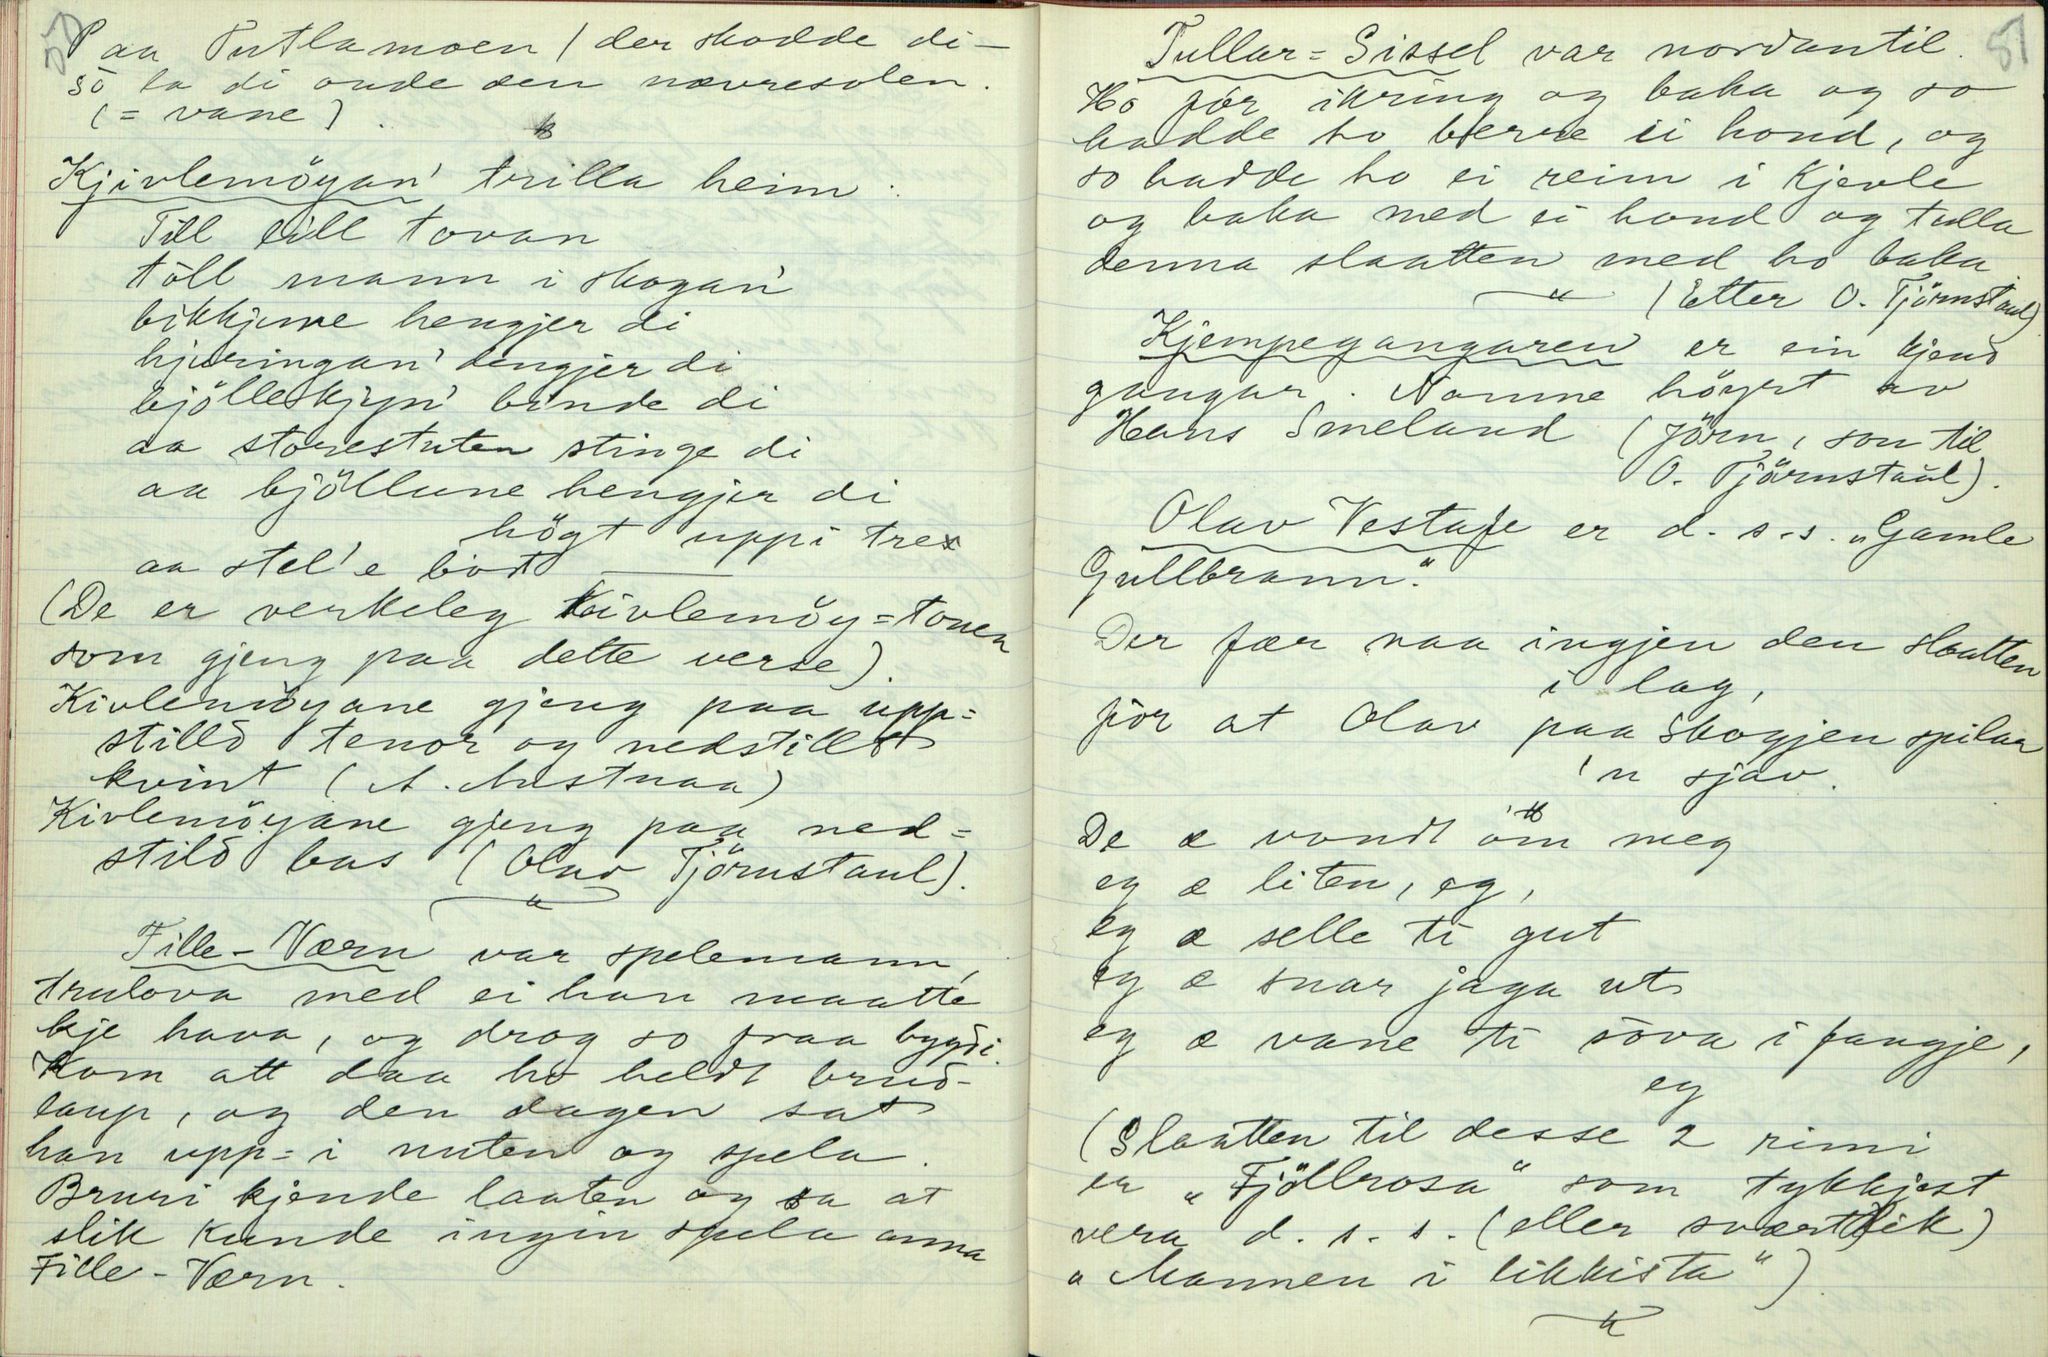 50
Paa Tutlamoen / der skodde di –
so la di onde den nævresolen.
(= vane).
Kjivlemöyan' trilla heim:
Till lill tovan
töll mann i skogan'
bikkjune hengjer di
hjuringan' dengjer di
bjölleskjyn' binde di
aa storestuten stinge di
aa bjöllune hengjer di
högt uppi tre
aa stel'e bort
(De er verkeleg Kivlemöy=tonen
som gjeng paa dette verse).
Kivlemöyane gjeng paa upp=
stilld tenor og nedstilld
kvint (A. Mastnaa)
Kivlemöyane gjeng paa ned=
stild bas (Olav Tjörnstaul).
Fille-Værn var spelemann,
trulova med ei han maatte
kje hava, og drog so fraa bygdi.
Kom att daa ho heldt brud-
laup, og den dagen sat
han upp=i nuten og spela.
Bruri kjende laaten og sa at
slik kunde ingin spela anna
Fille-Værn.
51
Tullar=Sissel var nordantil.
Ho för ikring og baka og so
hadde ho berre ei hond, og
so hadde ho ei reim i kjevle
og baka med ei hond og tulla
denna slaatten med ho baka
(Etter O. Tjörnstaul)
Kjempegangaren er ein kjend
gangar. Namne höyrt av
Hans Smeland (Jörn, son til
O. Tjörnstaul).
Olav Vestafe er d. s. s. „Gamle
Gullbrann."
Der fær naa ingjen den slaatten
i lag,
för at Olav paa Skogjen spilar
'n sjav.
De æ vondt öm meg
eg æ liten, eg,
eg æ selle ti gut
eg æ snar jaga ut
eg æ vane ti söva i fangje,
eg
(Slaatten til desse 2 rimi
er „Fjöllrosa" som tykkjest
vera d. s. s. (eller svært lik)
„Mannen i likkista")